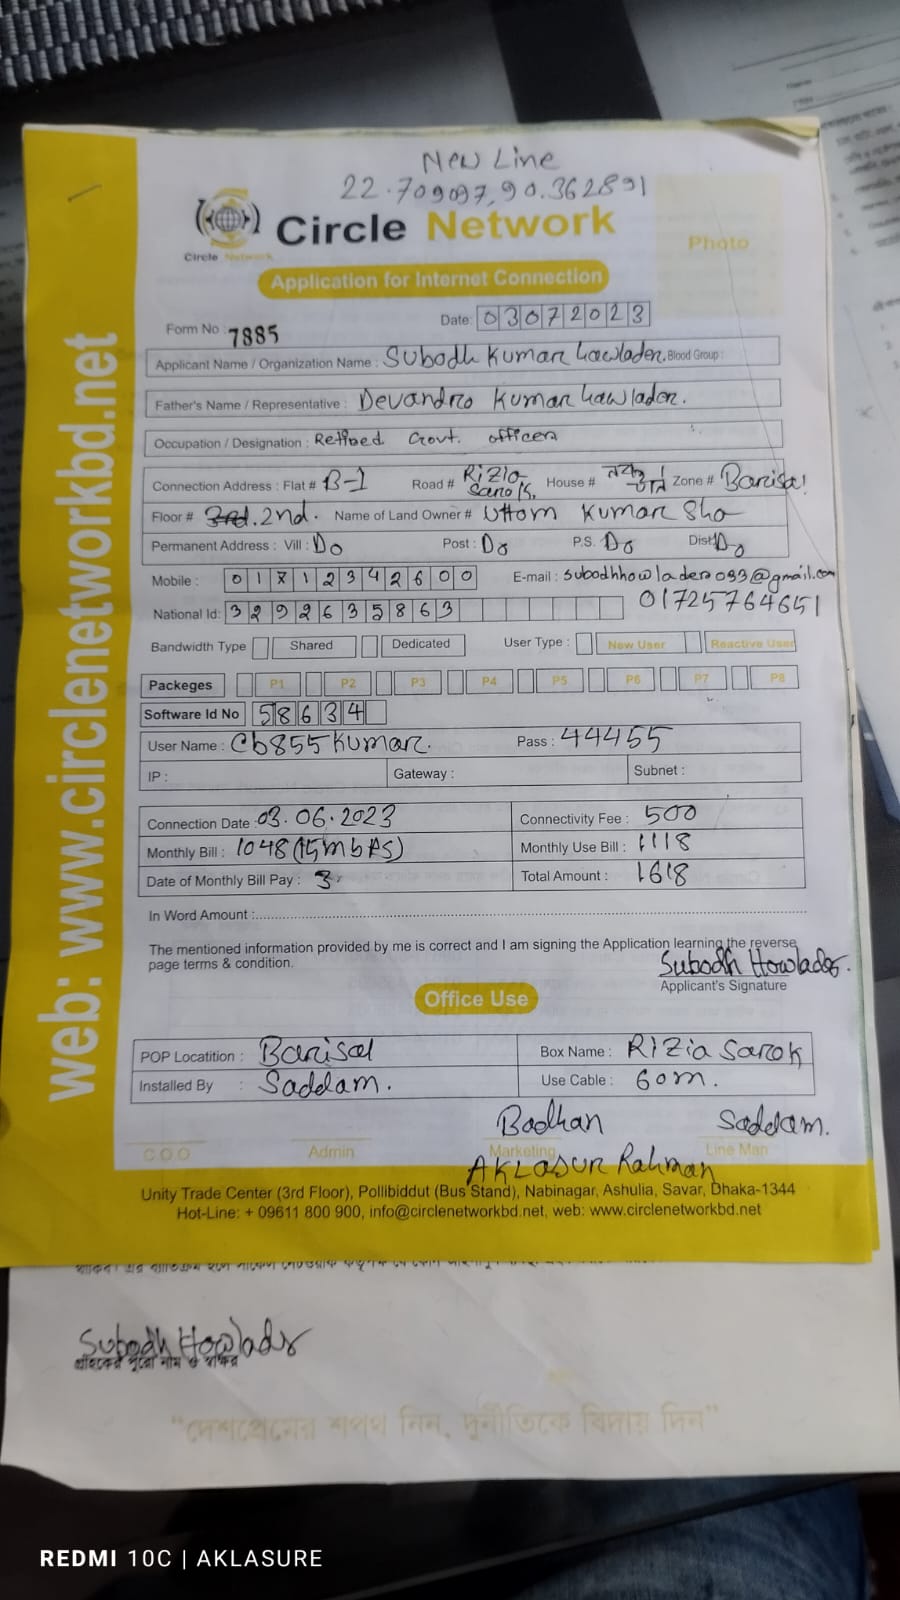 New Line
22.709097,90.362891
Circle Network
Circle Network
Photo
Application for Internet Connection
Form No : 7885
Date: 03072023
Applicant Name / Organization Name : Subodh Kumar hawlader. Blood Group :
Father's Name / Representative : Devandro Kumar hawlader.
Occupation / Designation : Retired Govt. officer
Connection Address : Flat # B-1 Road # Rizia Sarok, House # Zone # Barisal
Floor # 2nd. Name of Land Owner # Uttom Kumar Sha
Permanent Address : Vill : Do Post : Do P.S. Do Dist: Do
Mobile : 01712342600 E-mail : subodhhowlader093@gmail.com
National Id: 3292635863 01725764651
Bandwidth Type Shared Dedicated User Type : New User Reactive User
Packeges P1 P2 P3 P4 P5 P6 P7 P8
Software Id No 58634
User Name : Cb855kumar. Pass : 44455
IP : Gateway : Subnet :
Connection Date : 03.06.2023 Connectivity Fee : 500
Monthly Bill : 1048 (15mbps) Monthly Use Bill : 1118
Date of Monthly Bill Pay : 3 Total Amount : 1618
In Word Amount :
The mentioned information provided by me is correct and I am signing the Application learning the reverse
page terms & condition.
Subodh Howlader.
Applicant's Signature
Office Use
POP Locatition : Barisal Box Name : Rizia Sarok
Installed By : Saddam. Use Cable : 60m.
Badhan Saddam.
C.O.O Admin Marketing Line Man
AKLASUR Rahman
Unity Trade Center (3rd Floor), Pollibiddut (Bus Stand), Nabinagar, Ashulia, Savar, Dhaka-1344
Hot-Line: + 09611 800 900, info@circlenetworkbd.net, web: www.circlenetworkbd.net
web: www.circlenetworkbd.net
Subodh Howlader
গ্রাহকের পুরো নাম ও স্বাক্ষর
"দেশপ্রেমের শপথ নিন, দুর্নীতিকে বিদায় দিন"
REDMI 10C | AKLASURE